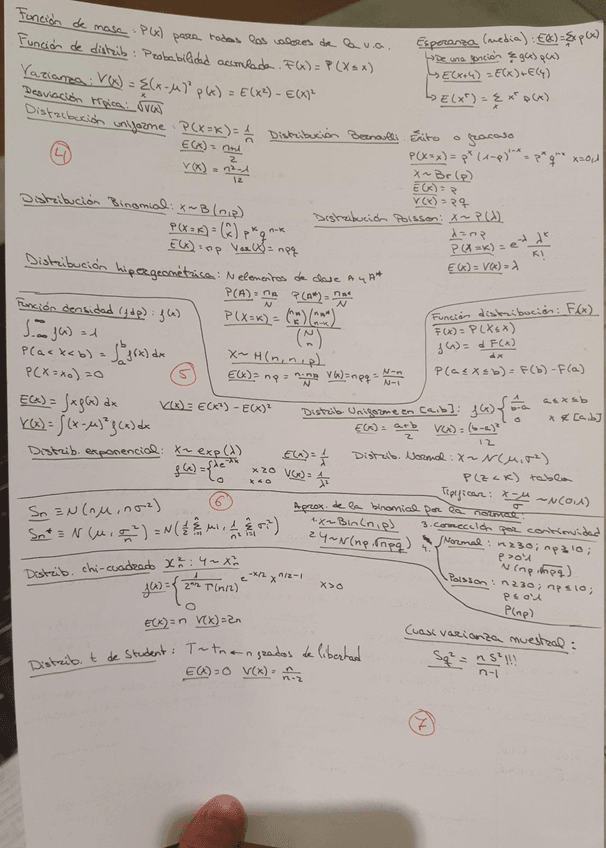 Función de masa: P(x) para todos los valores de la v.a.
Función de distrib: Probabilidad acumulada. F(x) = P(X≤x)
Esperanza (media): E(X)=∑ₓ x p(x)
↳ De una función ∑ₓ g(x) p(x)
↳ E(X+Y) = E(X)+E(Y)
↳ E(Xʳ) = ∑ₓ xʳ p(x)
Varianza: V(X) = ∑ₓ (x-μ)² p(x) = E(x²) - E(x)²
Desviación típica: √V(X)
Distribución uniforme: P(X=K) = 1/n
E(X) = (n+1)/2
V(X) = (n²-1)/12
④
Distribución Bernoulli: Éxito o fracaso
P(X=x) = pˣ (1-p)¹⁻ˣ = pˣ qⁿ⁻ˣ x=0,1
X~Br(p)
E(X) = p
V(X) = pq
Distribución Binomial: X~B(n,p)
P(X=K) = (n K) pᴷ qⁿ⁻ᴷ
E(X) = np Var(X) = npq
Distribución Poisson: X~P(λ)
λ = np
P(X=K) = e^-λ λᴷ/K!
E(X) = V(X) = λ
Distribución hipergeométrica: N elementos de clase A y A*
P(A) = nA/N P(A*) = nA*/N
P(X=K) = (nA K)(nA* n-K)/(N n)
X~H(N,n,p)
E(X) = np = n·nA/N V(X) = npq = N-n/N-1
Función densidad (fdp): f(x)
∫_-∞^∞ f(x) = 1
P(a<X<b) = ∫ₐᵇ f(x) dx
P(X=x₀) = 0
⑤
Función distribución: F(x)
F(x) = P(X≤x)
f(x) = dF(x)/dx
P(a≤X≤b) = F(b) - F(a)
E(X) = ∫x f(x) dx V(X) = E(x²) - E(x)²
V(X) = ∫(x-μ)² f(x) dx
Distrib. Uniforme en [a,b]: f(x) { 1/(b-a) a≤x≤b
0 x∉[a,b]
E(X) = (a+b)/2 V(X) = (b-a)²/12
Distrib. exponencial: X~exp(λ) E(X) = 1/λ
f(x) = { λe^-λx x≥0
0 x<0 V(X) = 1/λ²
Distrib. Normal: X~N(μ,σ²)
P(Z<K) tabla
Tipificar: (X-μ)/σ ~N(0,1)
⑥
Sn ≡ N(nμ, nσ²)
Sn* ≡ N(μ, σ²/n) = N(1/2 ∑ᵢ₌₁ⁿ μi, 1/n² ∑ᵢ₌₁ⁿ σi²)
Aprox. de la binomial por la normal:
1. X~Bin(n,p)
2. Y~N(np, √npq)
3. corrección por continuidad
4. Normal: n≥30; np≥10;
p>0'1
N(np, √npq)
Poisson: n≥30; np≤10;
p≤0'1
P(np)
Distrib. chi-cuadrado χ²n: Y~χ²n
f(x) = { 1/(2^(n/2) Γ(n/2)) e^(-x/2) x^(n/2-1) x>0
0
E(X) = n V(X) = 2n
Distrib. t de Student: T~tn ← n grados de libertad
E(X) = 0 V(X) = n/(n-2)
Cuasivarianza muestral:
Sq² = nS²/(n-1) !!!
⑦